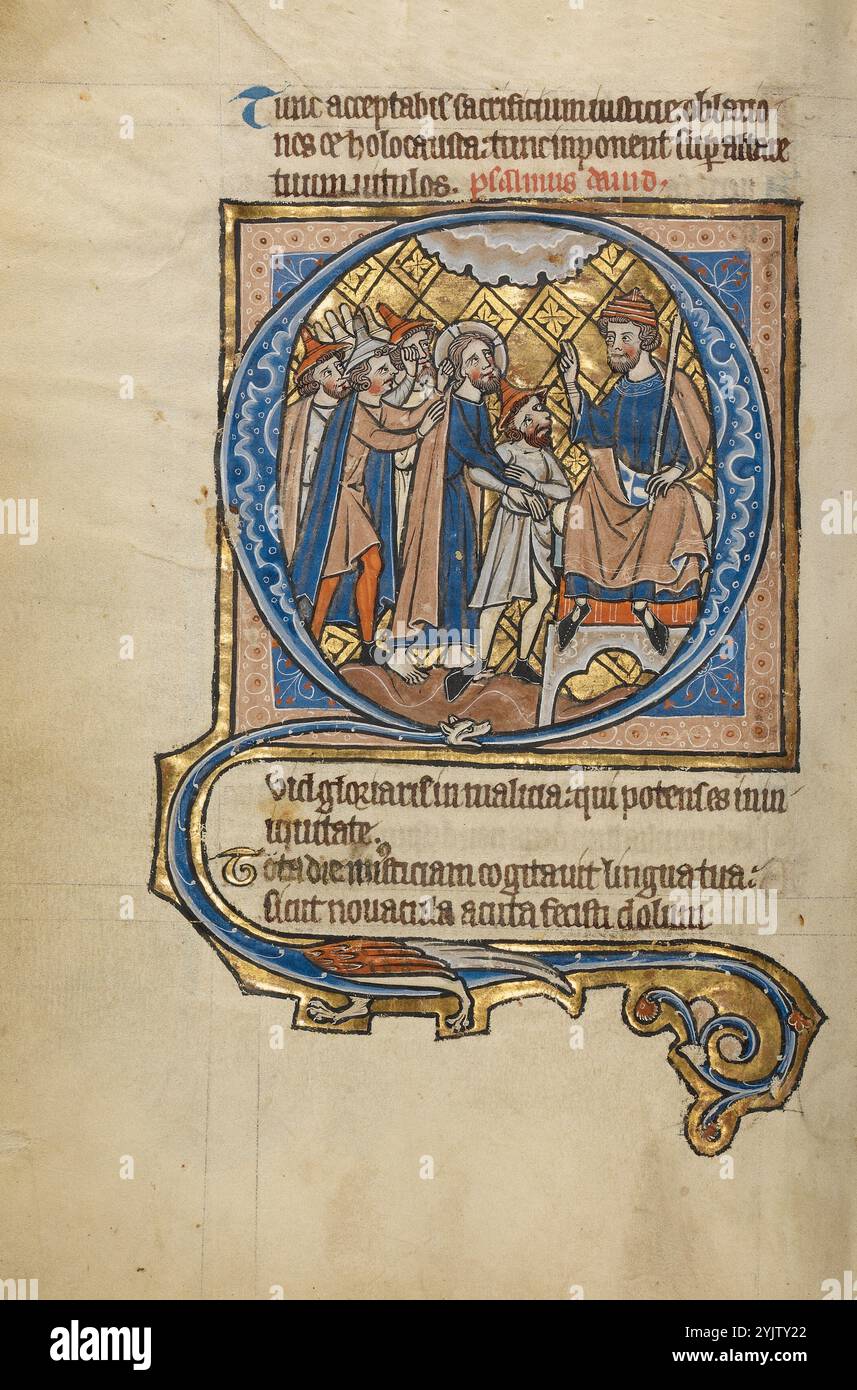 Tunc acceptabis sacrificium iusticie. oblatio
nes ce holocausta: tunc inponent sup altare
tuum uitulos. psalmus dauid.
Q
vid gloriaris in malicia: qui potens es in in
iquitate.
Tota die iniusticiam cogitauit lingua tua:
sicut nouacula acuta fecisti dolum
alamy
Image ID: 2YJTY22
www.alamy.com